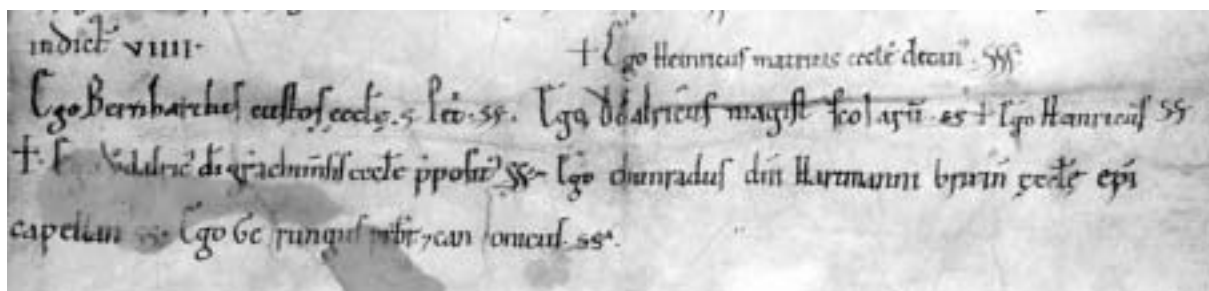 indict̄ VIIII· + Ego Heinricus matricis eccłe decan᾽ · SSS
Ego Bernhardus custos eccłę · s · Pet̄ · ss · Ego Ŏdalricus magist̄ scolarū · ss + Ego Hainricus SS
+ · Vdalric᾽ di gr̄a chimīsis eccłe p̄posit᾽ SS Ego chunradus dn̄i Hartmanni brixin̄ ęccłę ep̄i
capellan ss · Ego Ge rungus p̄br̄ ⁊ can onicus · ss ·